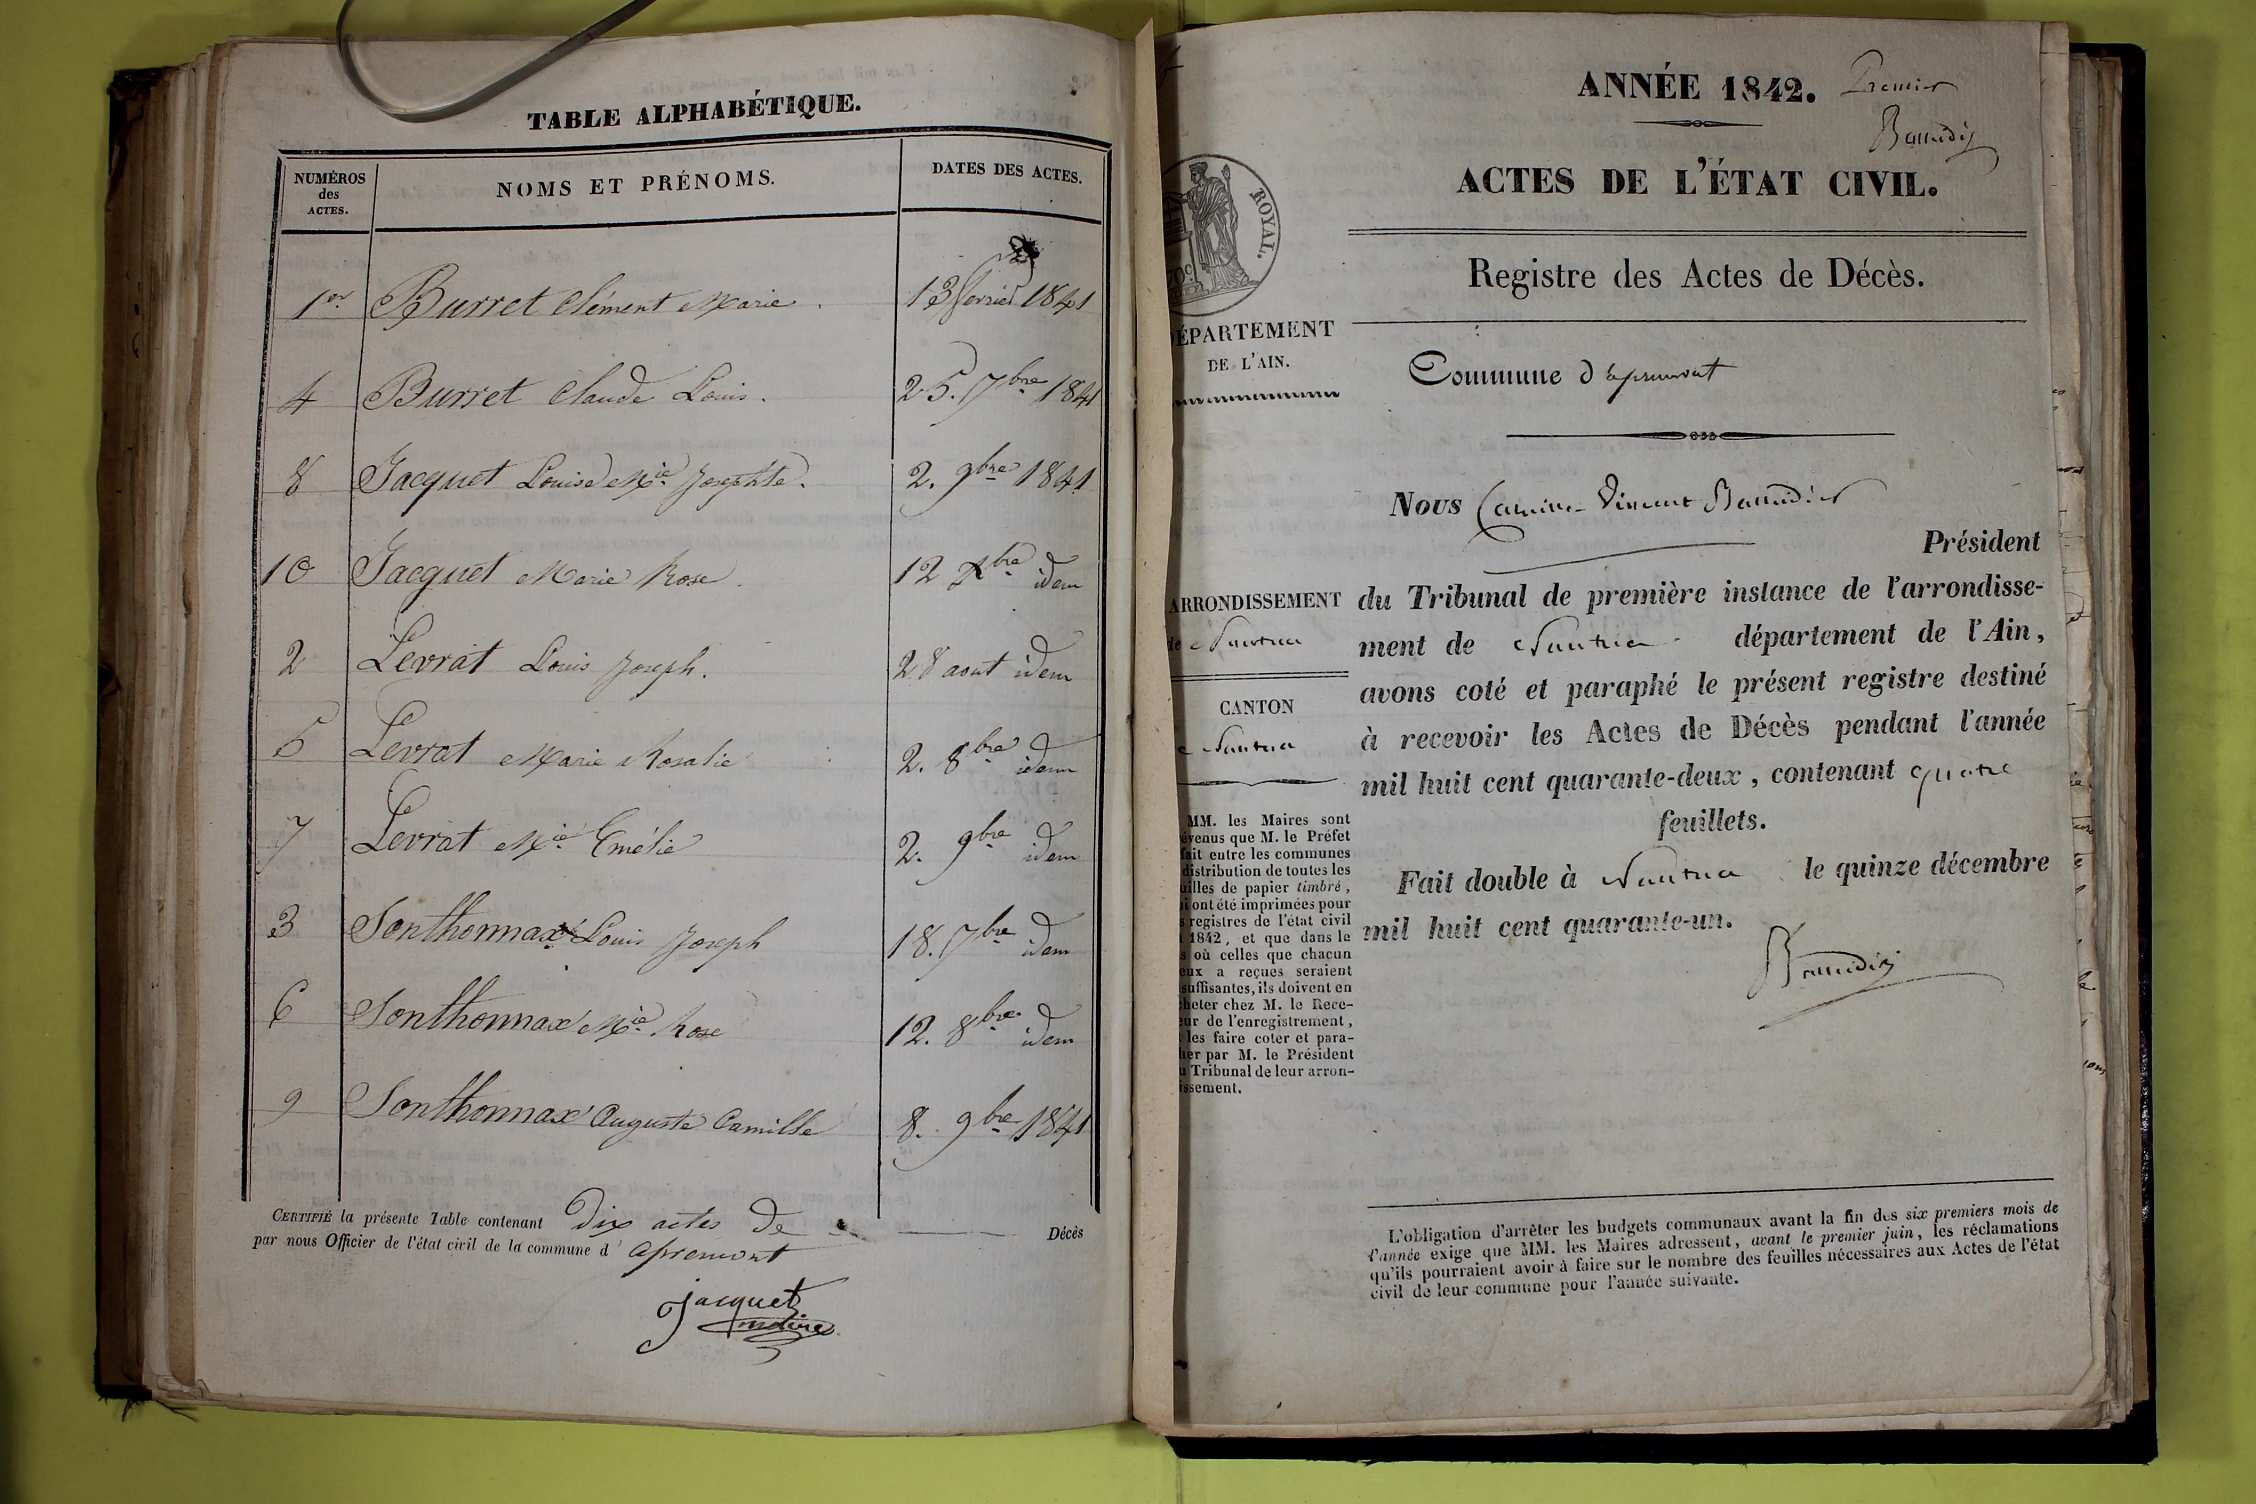 TABLE ALPHABÉTIQUE.
NUMÉROS des ACTES. NOMS ET PRÉNOMS. DATES DES ACTES.
1er Burret Clément Marie. 13 février 1841
4 Burret Claude Louis. 25. 7bre 1841
8 Jacquet Louise Mie Josephte. 2. 9bre 1841
10 Jacquet Marie Rose. 12 Xbre idem
2 Levrat Louis Joseph. 28 aout idem
5 Levrat Marie Rosalie 2. 8bre idem
7 Levrat Mie Emélie 2. 9bre idem
3 Sonthonnax Louis Joseph 18. 7bre idem
6 Sonthonnax Mie Rose 12. 8bre idem
9 Sonthonnax Auguste Camille 8. 9bre 1841
CERTIFIÉ la présente Table contenant Dix actes De Décès
par nous Officier de l'état civil de la commune d' apremont
Jacquet
maire
ANNÉE 1842. Premier
ACTES DE L'ÉTAT CIVIL.
Registre des Actes de Décès.
ROYAL.
DÉPARTEMENT
DE L'AIN.
Commune d'apremont
Nous Vincent
Président
ARRONDISSEMENT
de Nantua
CANTON
Nantua
du Tribunal de première instance de l'arrondisse-
ment de Nantua département de l'Ain,
avons coté et paraphé le présent registre destiné
à recevoir les Actes de Décès pendant l'année
mil huit cent quarante-deux, contenant quatre
feuillets.
Fait double à Nantua le quinze décembre
mil huit cent quarante-un.
MM. les Maires sont
évenus que M. le Préfet
fait entre les communes
distribution de toutes les
uilles de papier timbré,
i ont été imprimées pour
s registres de l'état civil
1842, et que dans le
s où celles que chacun
eux a reçues seraient
suffisantes, ils doivent en
heter chez M. le Rece-
eur de l'enregistrement,
les faire coter et para-
her par M. le Président
u Tribunal de leur arron-
issement.
L'obligation d'arrêter les budgets communaux avant la fin des six premiers mois de
l'année exige que MM. les Maires adressent, avant le premier juin, les réclamations
qu'ils pourraient avoir à faire sur le nombre des feuilles nécessaires aux Actes de l'état
civil de leur commune pour l'année suivante.